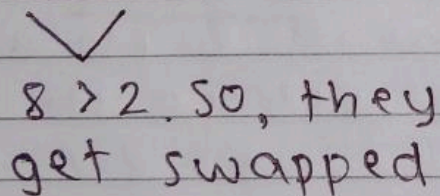 8 > 2. So, they
get swapped